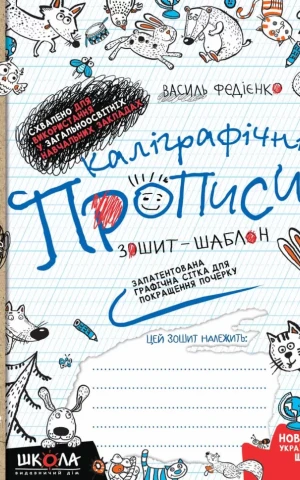 СХВАЛЕНО ДЛЯ
ВИКОРИСТАННЯ
У ЗАГАЛЬНООСВІТНІХ
НАВЧАЛЬНИХ ЗАКЛАДАХ
ВАСИЛЬ ФЕДІЄНКО
каліграфічні
ПРОПИСИ
ЗОШИТ – ШАБЛОН
ЗАПАТЕНТОВАНА
ГРАФІЧНА СІТКА ДЛЯ
ПОКРАЩЕННЯ ПОЧЕРКУ
ЦЕЙ ЗОШИТ НАЛЕЖИТЬ:
ШКОЛА
ВИДАВНИЧИЙ ДІМ
НОВА
УКРАЇ
Ш